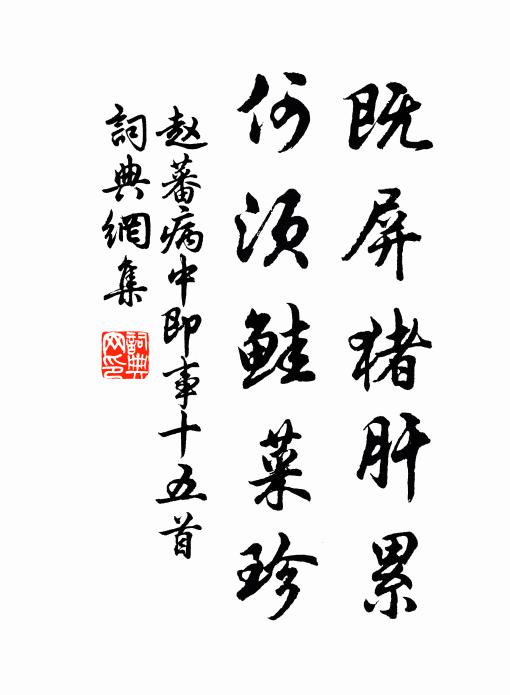 既屏猪肝累
何须鲑菜珍
赵蕃病中即事十五首
詞典網集
詞典网印